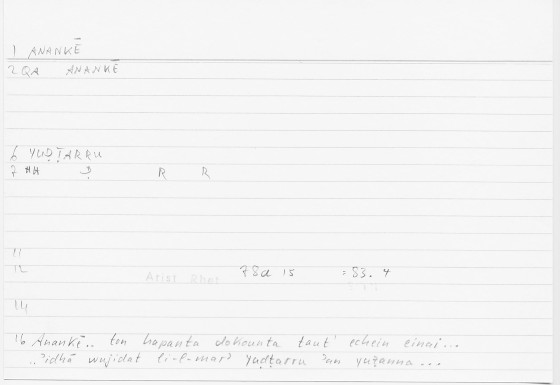 1 ANANKĒ
2 QA ANANKĒ
6 YUḌṬARRU
7 HH Ḍ R R
11
12 Arist Rhet 78a 15 = 83. 4
14
16 Anankē.. ton hapanta dokounta taut' echein einai...
..ʾidhā wujidat li-l-marʾ yuḍṭarru ʾan yuẓanna...